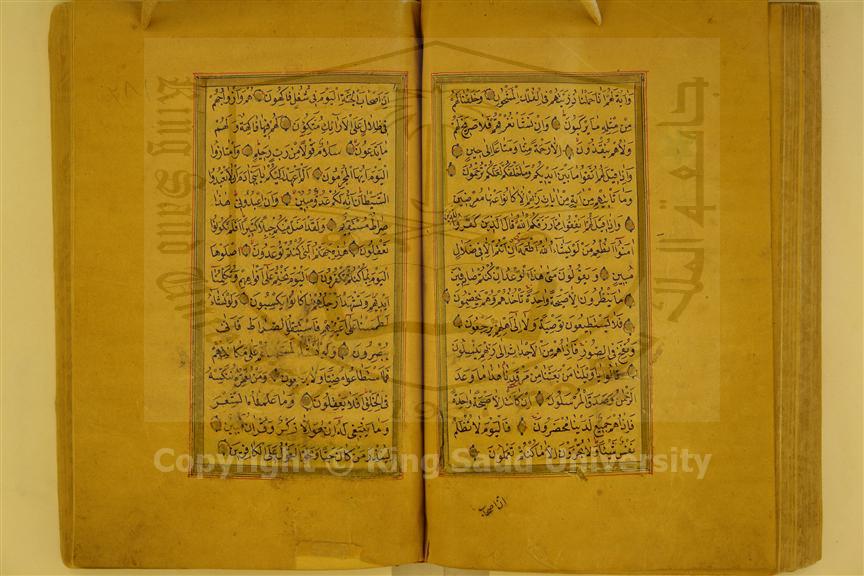 وآية لهم انا حملنا ذريتهم في الفلك المشحون وخلقنا لهم
من مثله ما يركبون وان نشأ نغرقهم فلا صريخ لهم
ولا هم ينقذون الا رحمة منا ومتاعا الى حين
واذا قيل لهم اتقوا ما بين ايديكم وما خلفكم لعلكم ترحمون
وما تأتيهم من آية من آيات ربهم الا كانوا عنها معرضين
واذا قيل لهم انفقوا مما رزقكم الله قال الذين كفروا للذين
آمنوا انطعم من لو يشاء الله اطعمه ان انتم الا في ضلال
مبين ويقولون متى هذا الوعد ان كنتم صادقين
ما ينظرون الا صيحة واحدة تأخذهم وهم يخصمون
فلا يستطيعون توصية ولا الى اهلهم يرجعون
ونفخ في الصور فاذا هم من الاجداث الى ربهم ينسلون
قالوا يا ويلنا من بعثنا من مرقدنا هذا ما وعد
الرحمن وصدق المرسلون ان كانت الا صيحة واحدة
فاذا هم جميع لدينا محضرون فاليوم لا تظلم
نفس شيئا ولا تجزون الا ما كنتم تعملون
ان اصحاب
ان اصحاب الجنة اليوم في شغل فاكهون هم وازواجهم
في ظلال على الارائك متكؤن لهم فيها فاكهة ولهم
ما يدعون سلام قولا من رب رحيم وامتازوا
اليوم ايها المجرمون الم اعهد اليكم يا بني آدم ان لا تعبدوا
الشيطان انه لكم عدو مبين وان اعبدوني هذا
صراط مستقيم ولقد اضل منكم جبلا كثيرا افلم تكونوا
تعقلون هذه جهنم التي كنتم توعدون اصلوها
اليوم بما كنتم تكفرون اليوم نختم على افواههم وتكلمنا
ايديهم وتشهد ارجلهم بما كانوا يكسبون ولو نشاء
لطمسنا على اعينهم فاستبقوا الصراط فانى
يبصرون ولو نشاء لمسخناهم على مكانتهم
فما استطاعوا مضيا ولا يرجعون ومن نعمره ننكسه
في الخلق افلا يعقلون وما علمناه الشعر
وما ينبغي له ان هو الا ذكر وقرآن مبين
لينذر من كان حيا ويحق القول على الكافرين
جامعة الملك
King Saud
Copyright © King Saud University